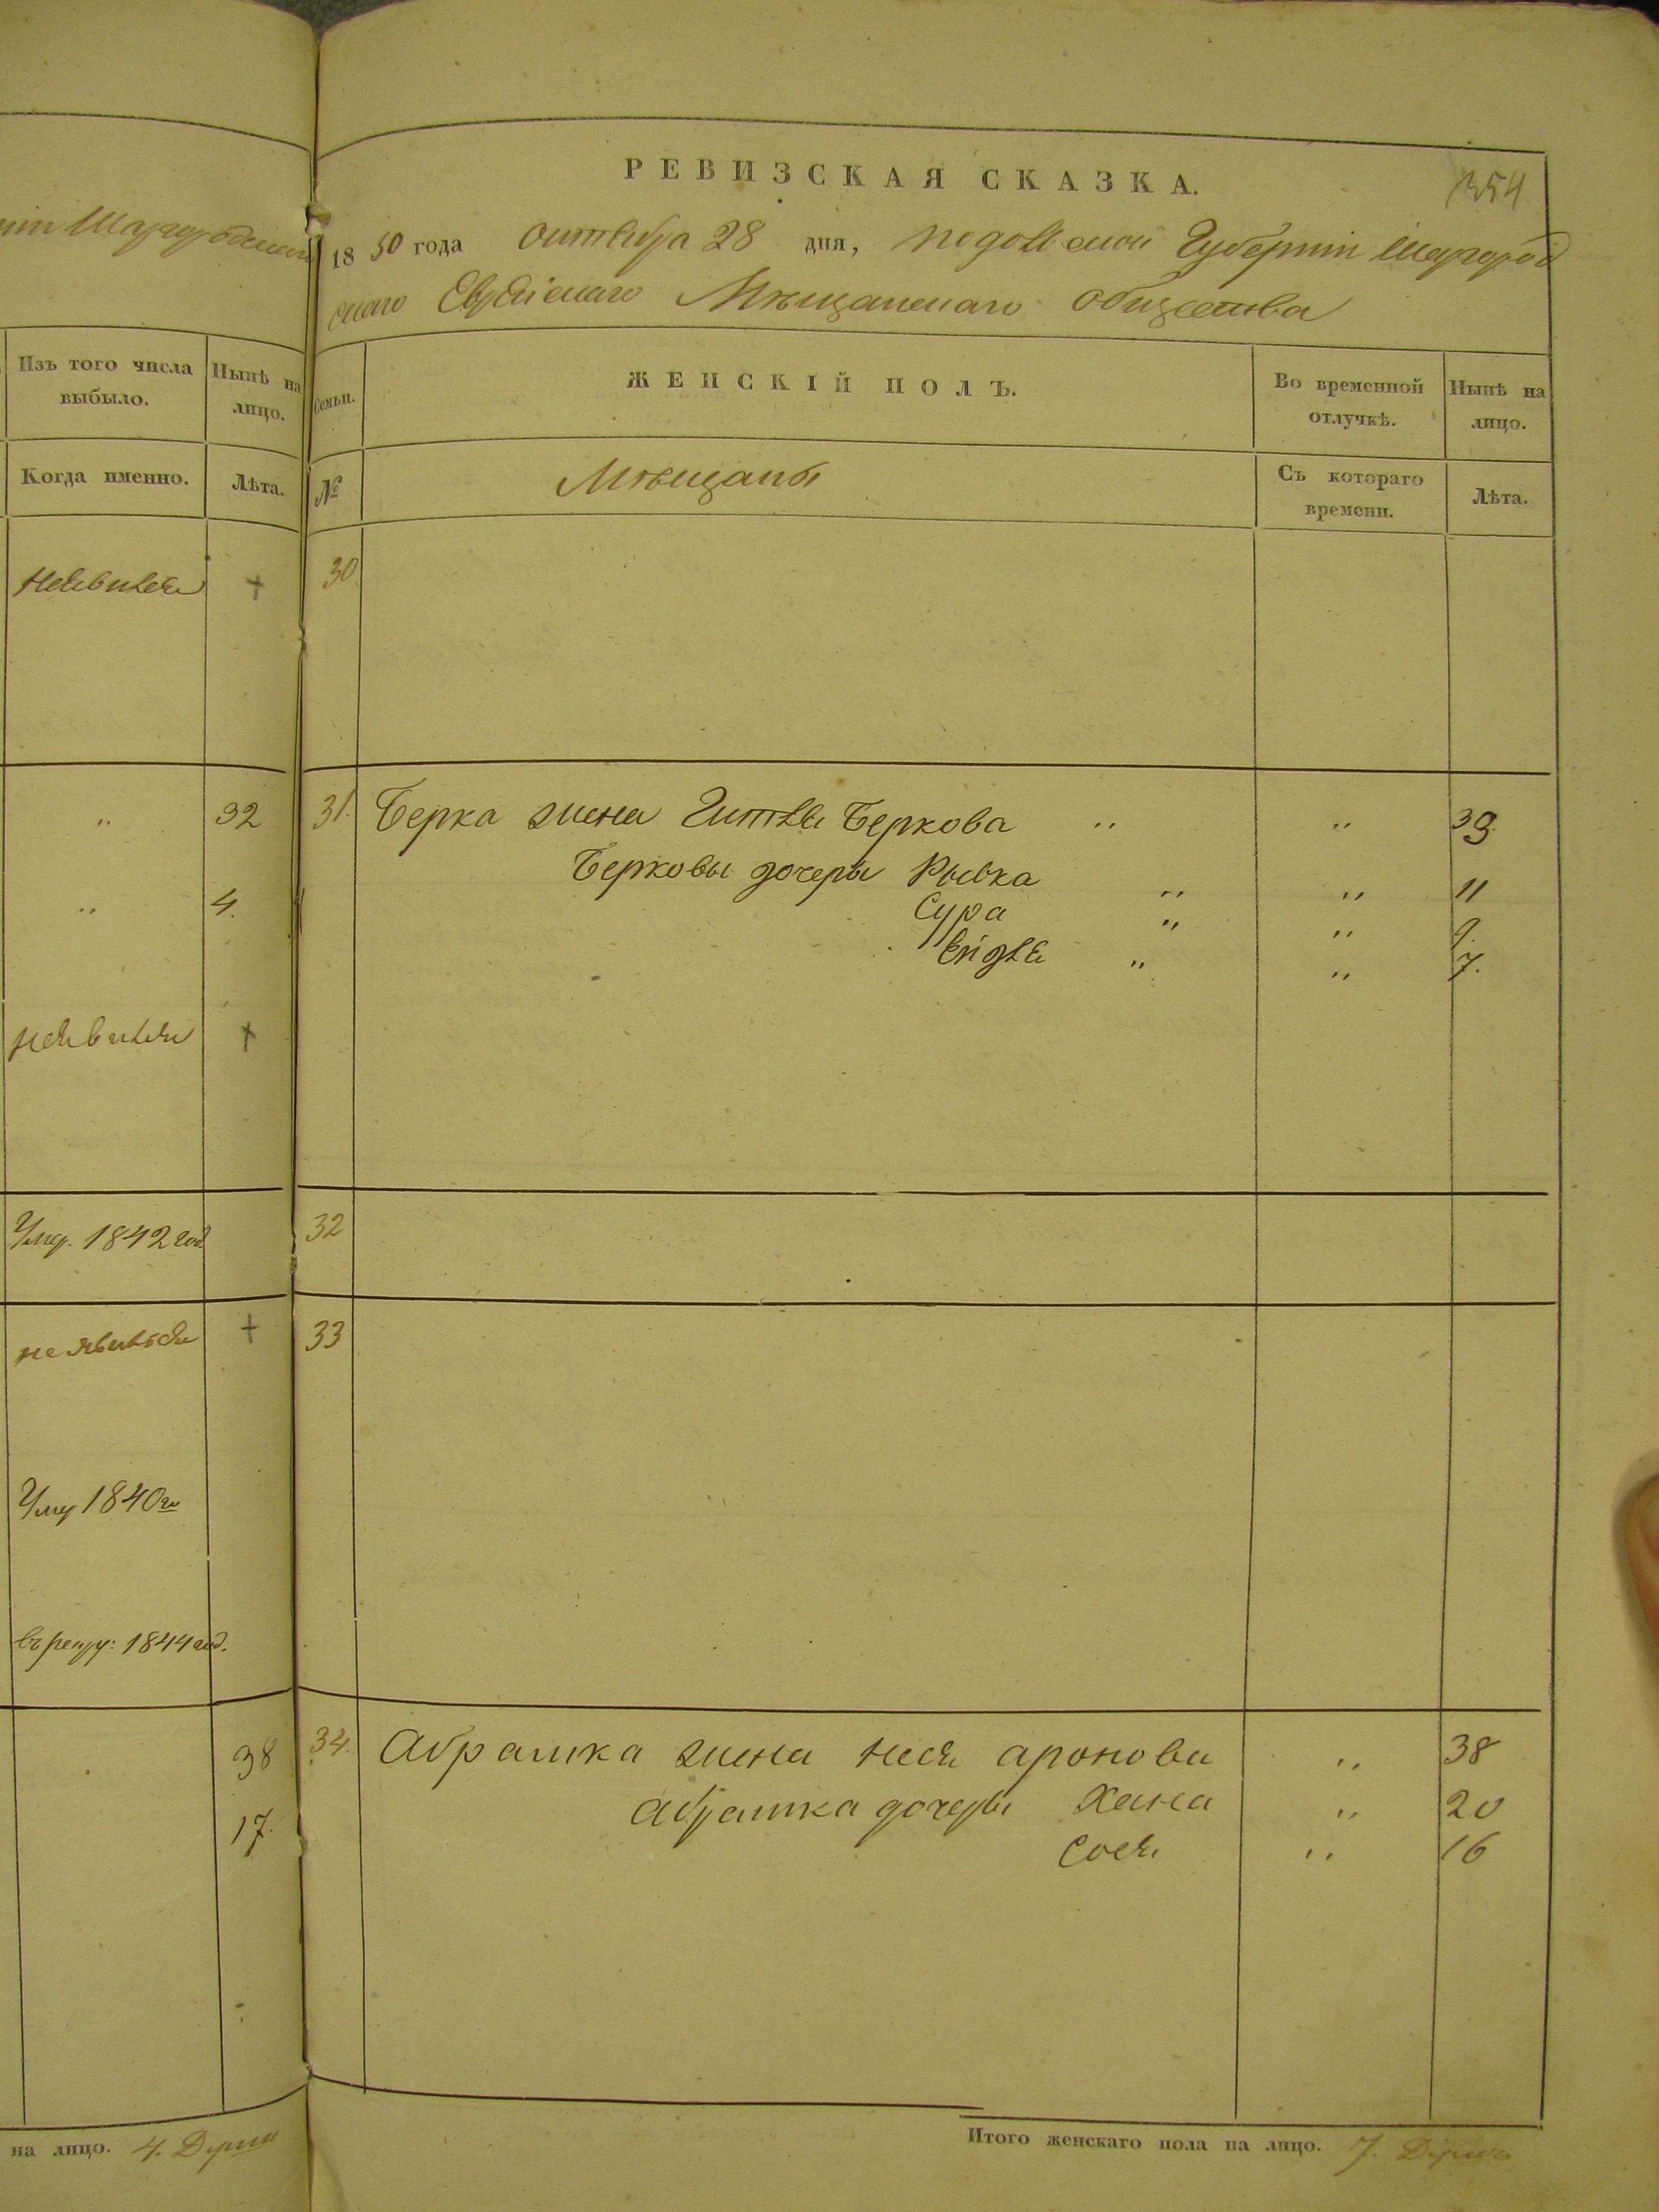 Шаргородскаго
Изъ того числа выбыло.
Нынѣ на лицо.
Когда именно.
Лѣта.
неявился +
„ 32
„ 4.
неявился +
Умер. 1842 год
не явился +
Уме 1840го
въ рекру: 1844 год.
38
17.
на лицо. 4. Души
РЕВИЗСКАЯ СКАЗКА.
354
1850 года октября 28 дня, Подольской Губерніи Шаргород
скаго Еврейскаго Мѣщанскаго общества
Семьи.
ЖЕНСКІЙ ПОЛЪ.
Во временной отлучкѣ.
Нынѣ на лицо.
№
Мѣщаны
Съ котораго времени.
Лѣта.
30
31. Берка жена Гитля Беркова „ „ 39.
Берковы дочеры Рывка „ „ 11
Сура „ „ 9.
Ейдля „ „ 7.
32
33
34. Абрамка жена Нися аронова „ 38
Абрамка дочеры Хана „ 20
Сося „ 16
Итого женскаго пола на лицо. 7.